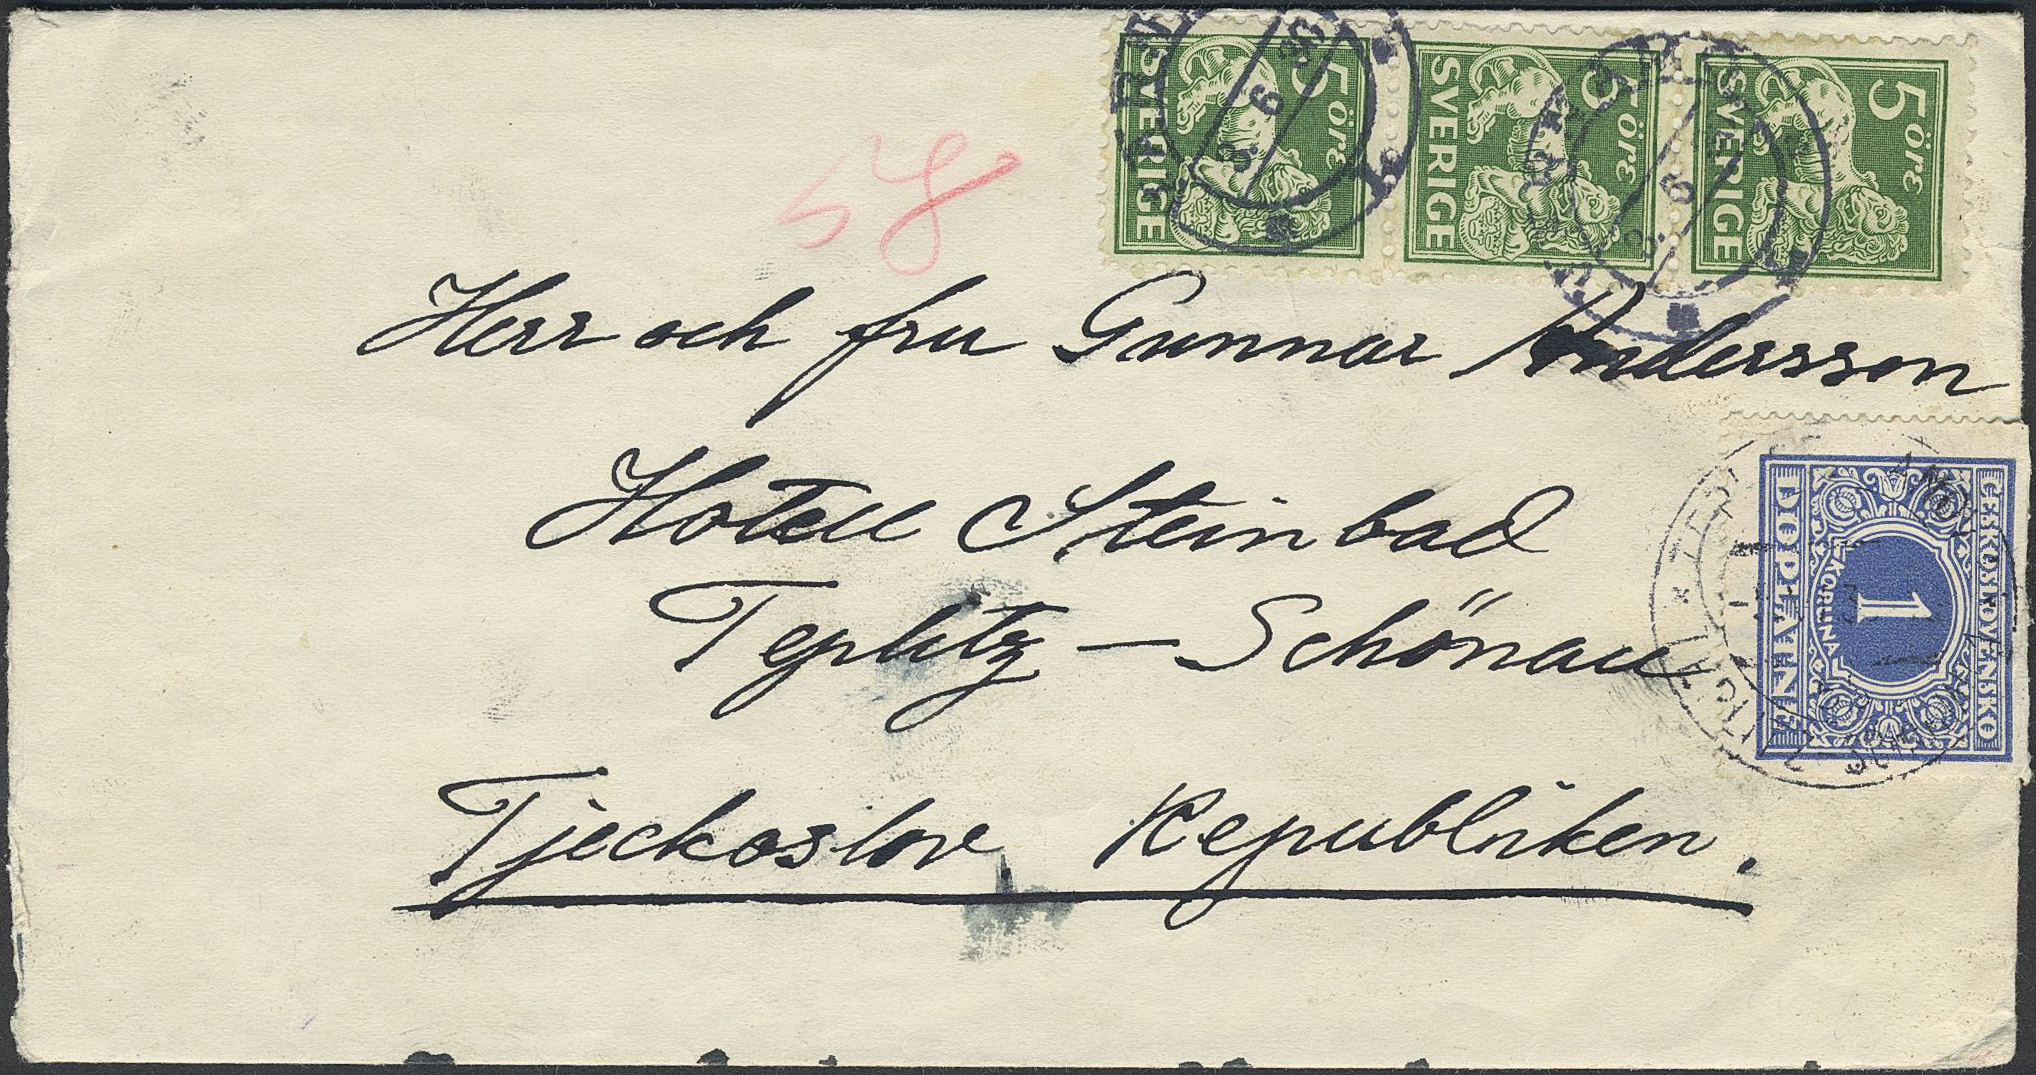 58
5 öre
SVERIGE
5 öre
SVERIGE
5 öre
SVERIGE
Herr och fru Gunnar Andersson
Hotell Steinbad
Teplitz – Schönau
Tjeckoslov. Republiken.
ČESKOSLOVENSKO
1
KORUNA
DOPLATNÉ